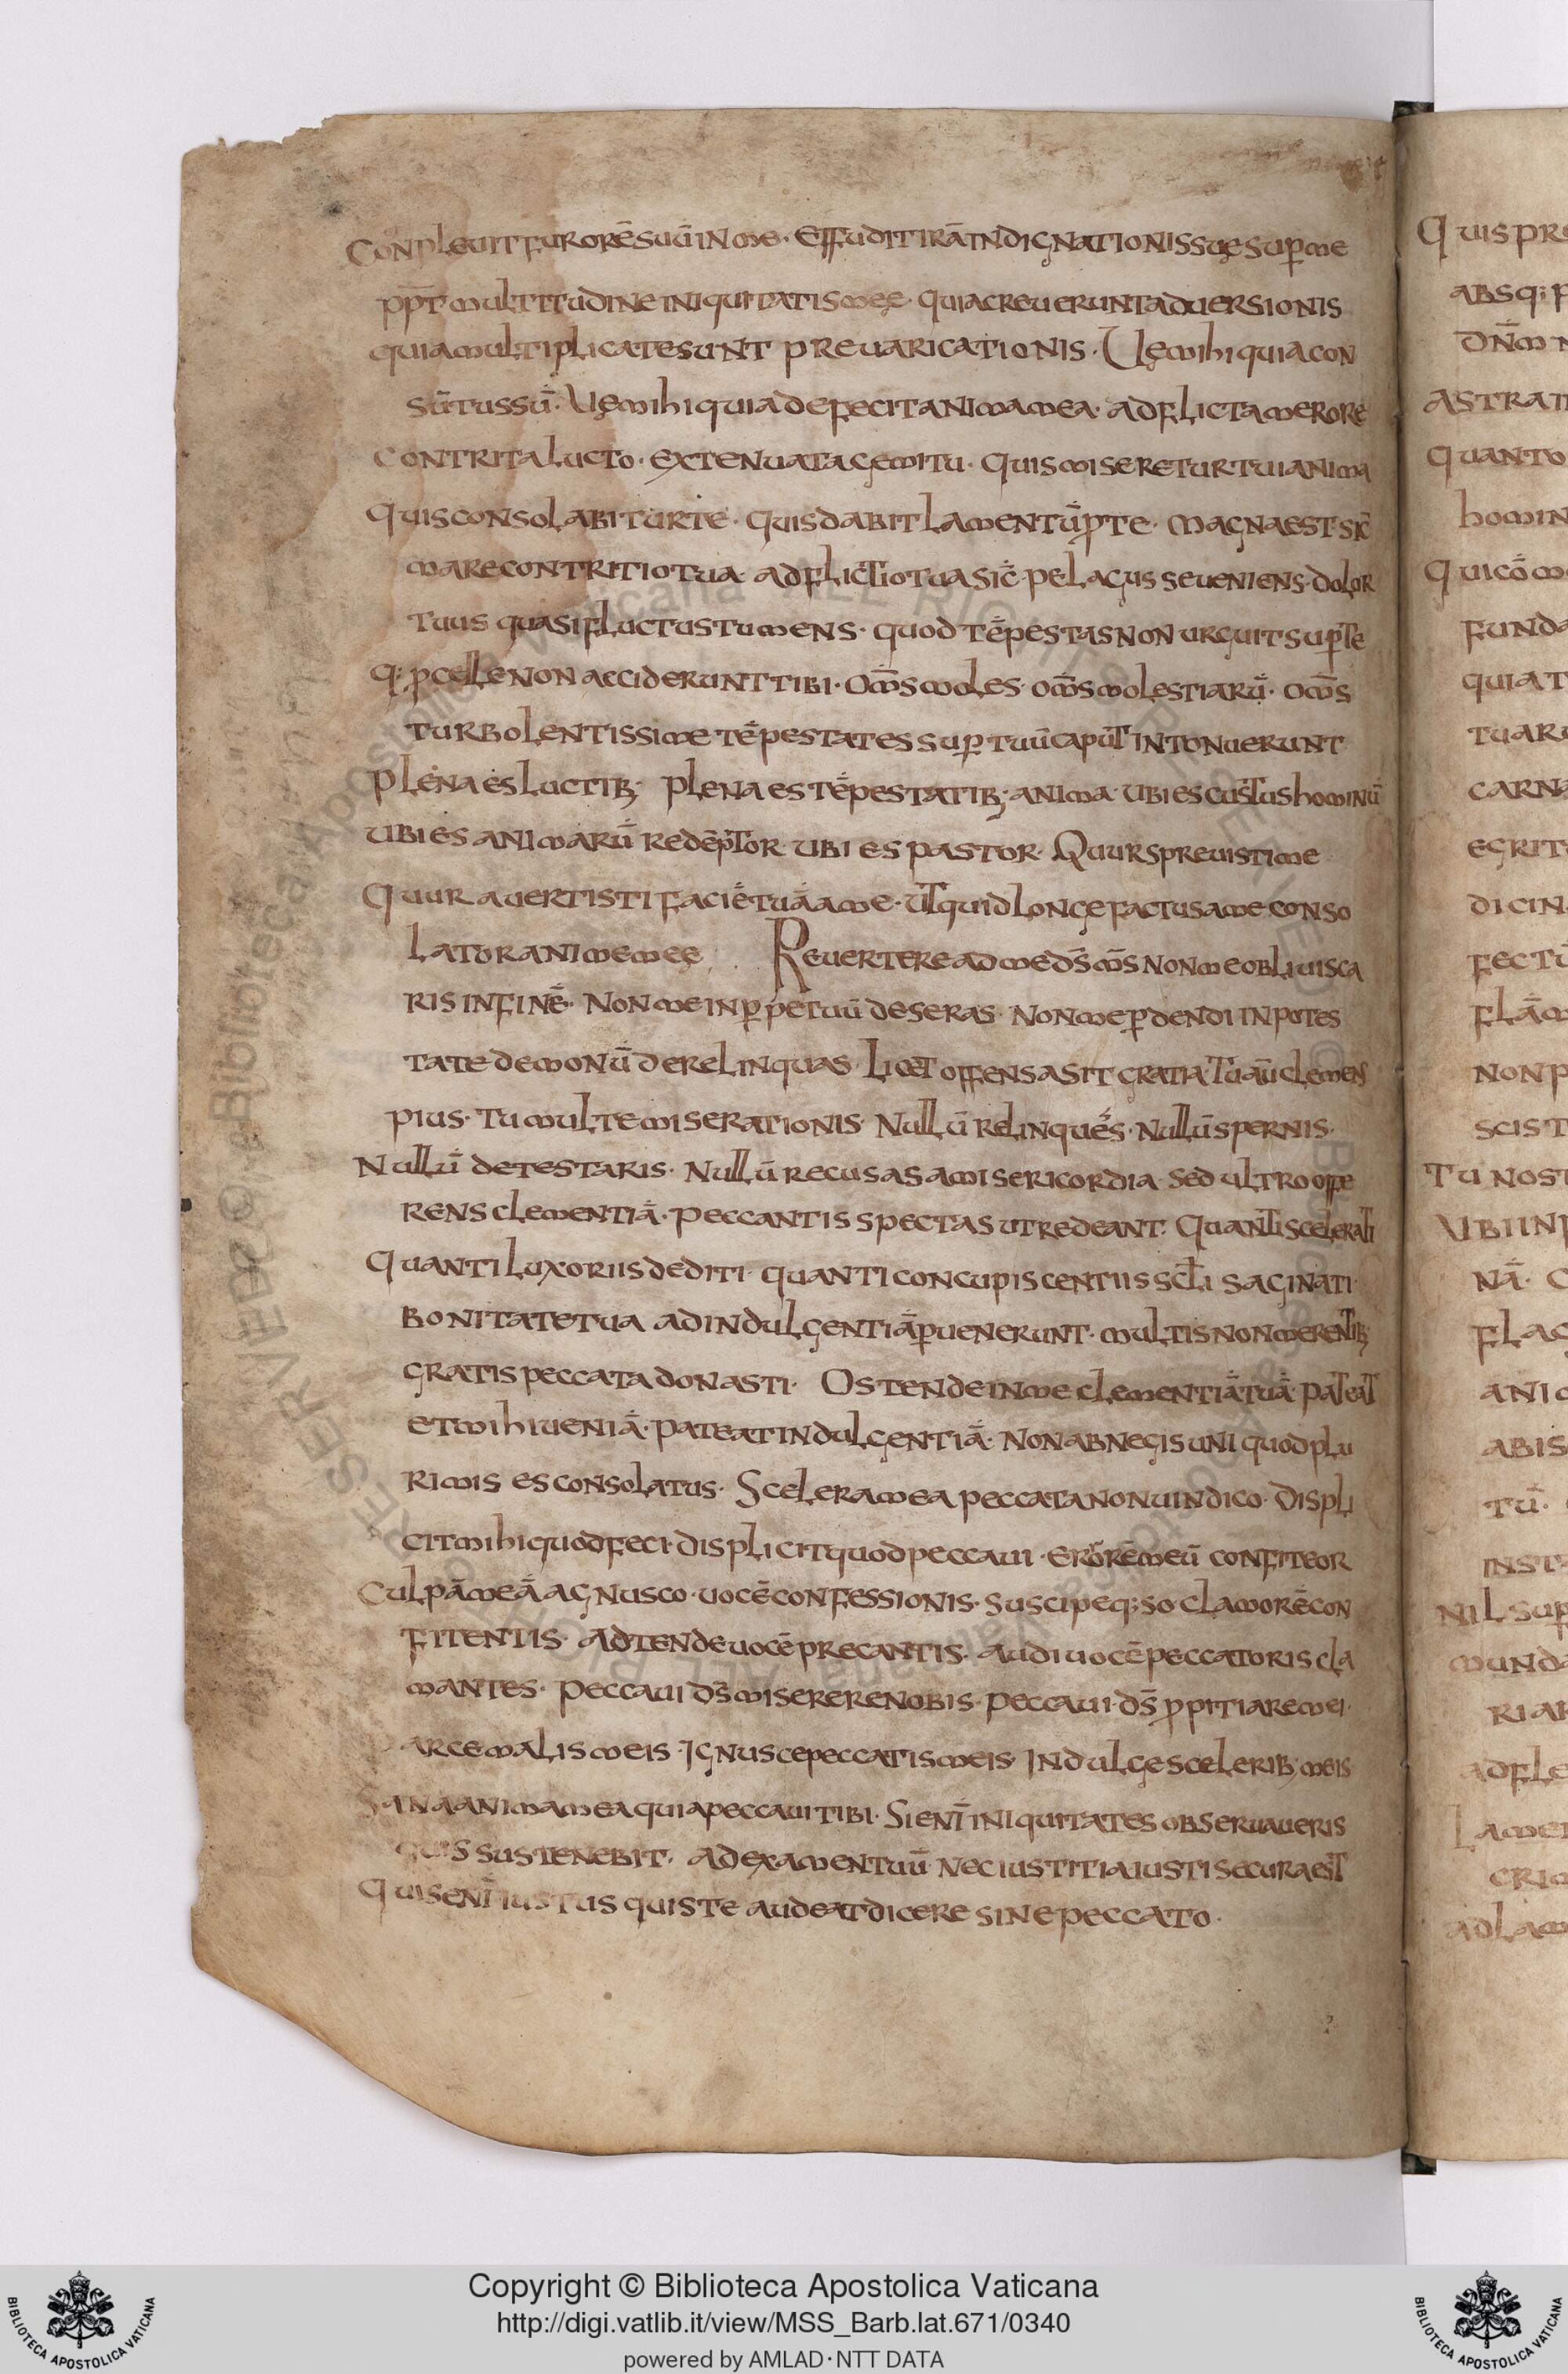 Conpleuit furorē suū in me · Effudit irā indignationis suę sup̄ me
pp̄t multitudine iniquitatis meę · quia creuerunt aduersionis
quia multiplicate sunt preuaricationis · Uę mihi quia con
sūtus sū · Uę mihi quia defecit anima mea · adflicta merore
Contrita lucto · extenuata gemitu · quis miseretur tui anima
Quis consolabitur te · quis dabit lamentū p̄ te · magna est sic̄
mare contritio tua · adflictio tua sic̄ pelagus seueniens · dolor
tuus quasi fluctus tumens · quod tēpestas non urguit sup̄ te
q: p̄celle non acciderunt tibi · om̄s moles · om̄s molestiarū · om̄s
turbolentissime tēpestates sup̄ tuū caput intonuerunt
Plena es luctib; plena es tēpestatib; anima · ubi es custus hominū
Ubi es animarū redēptor · ubi es pastor · Quur spreuisti me
Quur auertisti faciē tuā a me · ut quid longe factus a me conso
lator anime meę · Reuertere ad me ds̄ ms̄ non me obliuisca
ris in finē · Non me in p̄petuū deseras · Non me p̄dendi in potes
tate demonū derelinquas · Licet offensa sit gratia tua tū clemens
pius · tu multe miserationis · Nullū relinques · Nullū spernis ·
Nullū detestaris · Nullū recusas a misericordia · sed ultro offe
rens clementiā · peccantis spectas ut redeant · Quanti scelerati
Quanti luxoriis dediti · quanti concupiscentiis scl̄i saginati
bonitate tua ad indulgentiā p̄uenerunt · multis non merentib;
gratis peccata donasti · Ostende in me clementiā tuā · pateat
et mihi ueniā · pateat indulgentiā · Non abnegis uni quod plu
rimis es consolatus · Scelera mea peccata non uindico · Displi
cit mihi quod feci · displicit quod peccaui · errorem meū confiteor
Culpā meā agnusco · uocē confessionis · suscipe q:so clamorē con
fitentiis · adtende uocē precantis · audi uocē peccatoris cla
mantes · peccaui ds̄ miserere nobis · peccaui · ds̄ p̄pitiare mei ·
Parce malis meis · Ignusce peccatis meis · Indulge scelerib; meis
Sana anima mea quia peccaui tibi · Si enī iniquitates obseruaueris
quis sustenebit · ad examen tuū nec iustitia iusti secura est
Quis enī iustus qui ste audeat dicere sine peccato ·
Quis pre
absq; p
dn̄m n
astran
quanto
homin
Quicō m
funda
quia t
tuaru
carna
egrit
di cin
fectu
flām
non p
scis t
Tu nost
Ubi in
nā ·
flag
ani
abis
tū ·
inst
nil sup
munda
ria
adfle
lamen
cri
ad lam
Copyright © Biblioteca Apostolica Vaticana
http://digi.vatlib.it/view/MSS_Barb.lat.671/0340
powered by AMLAD·NTT DATA
BIBLIOTECA APOSTOLICA VATICANA
BIBLIOTECA APOSTOLICA VATICANA